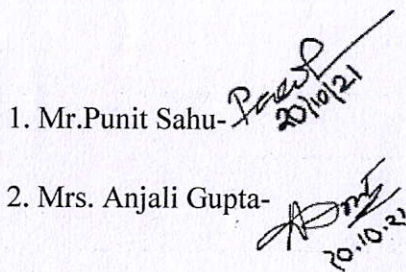 1. Mr.Punit Sahu-
20/10/21
2. Mrs. Anjali Gupta-
20.10.21